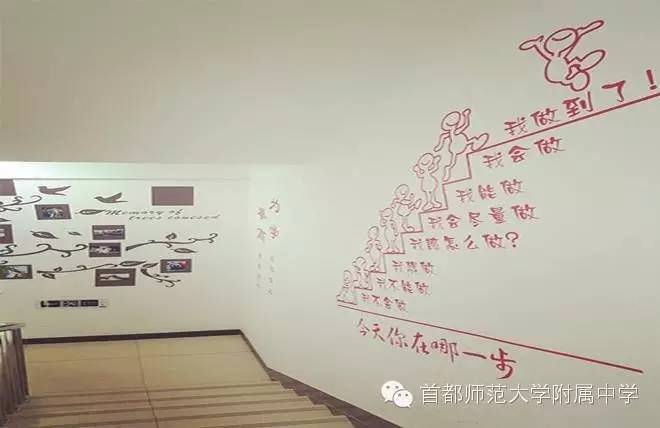 我做到了！
我会做
我能做
我会尽量做
我该怎么做？
我想做
我不能做
我不会做
今天你在哪一步
Memory of
为学
首都师范大学附属中学